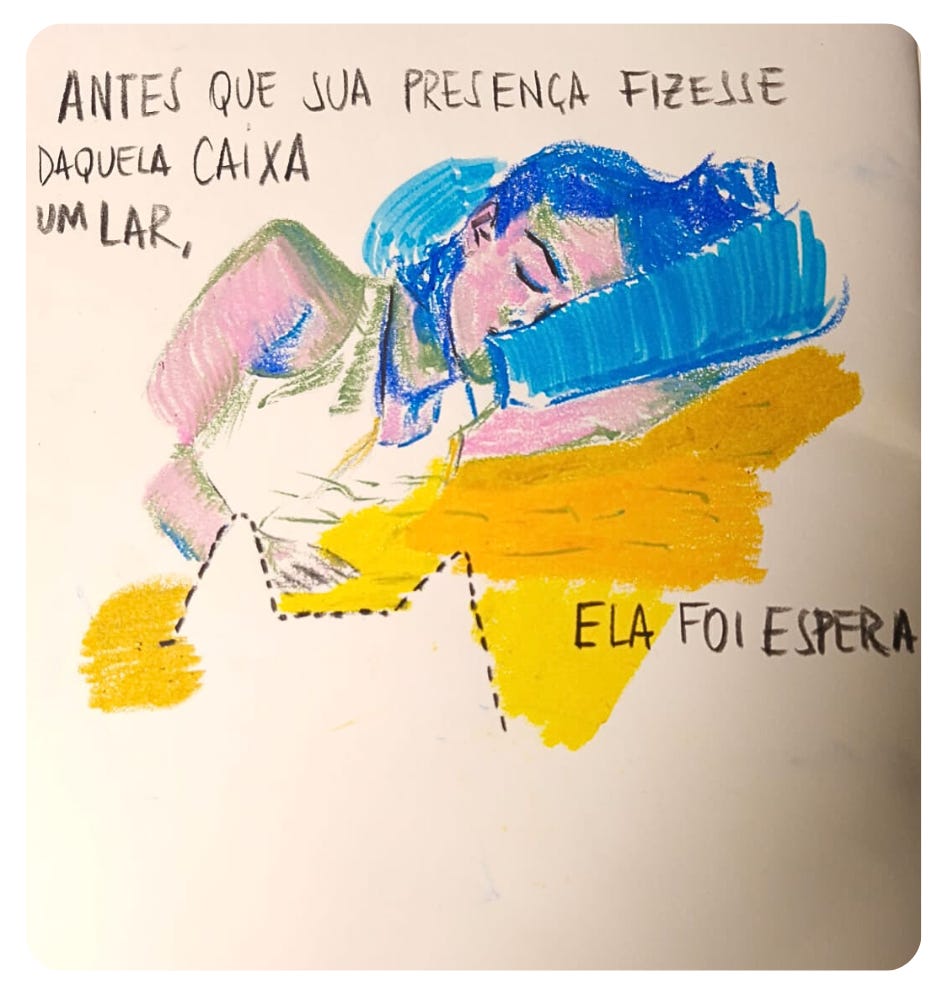 ANTES QUE SUA PRESENÇA FIZESSE
DAQUELA CAIXA
UM LAR,
ELA FOI ESPERA